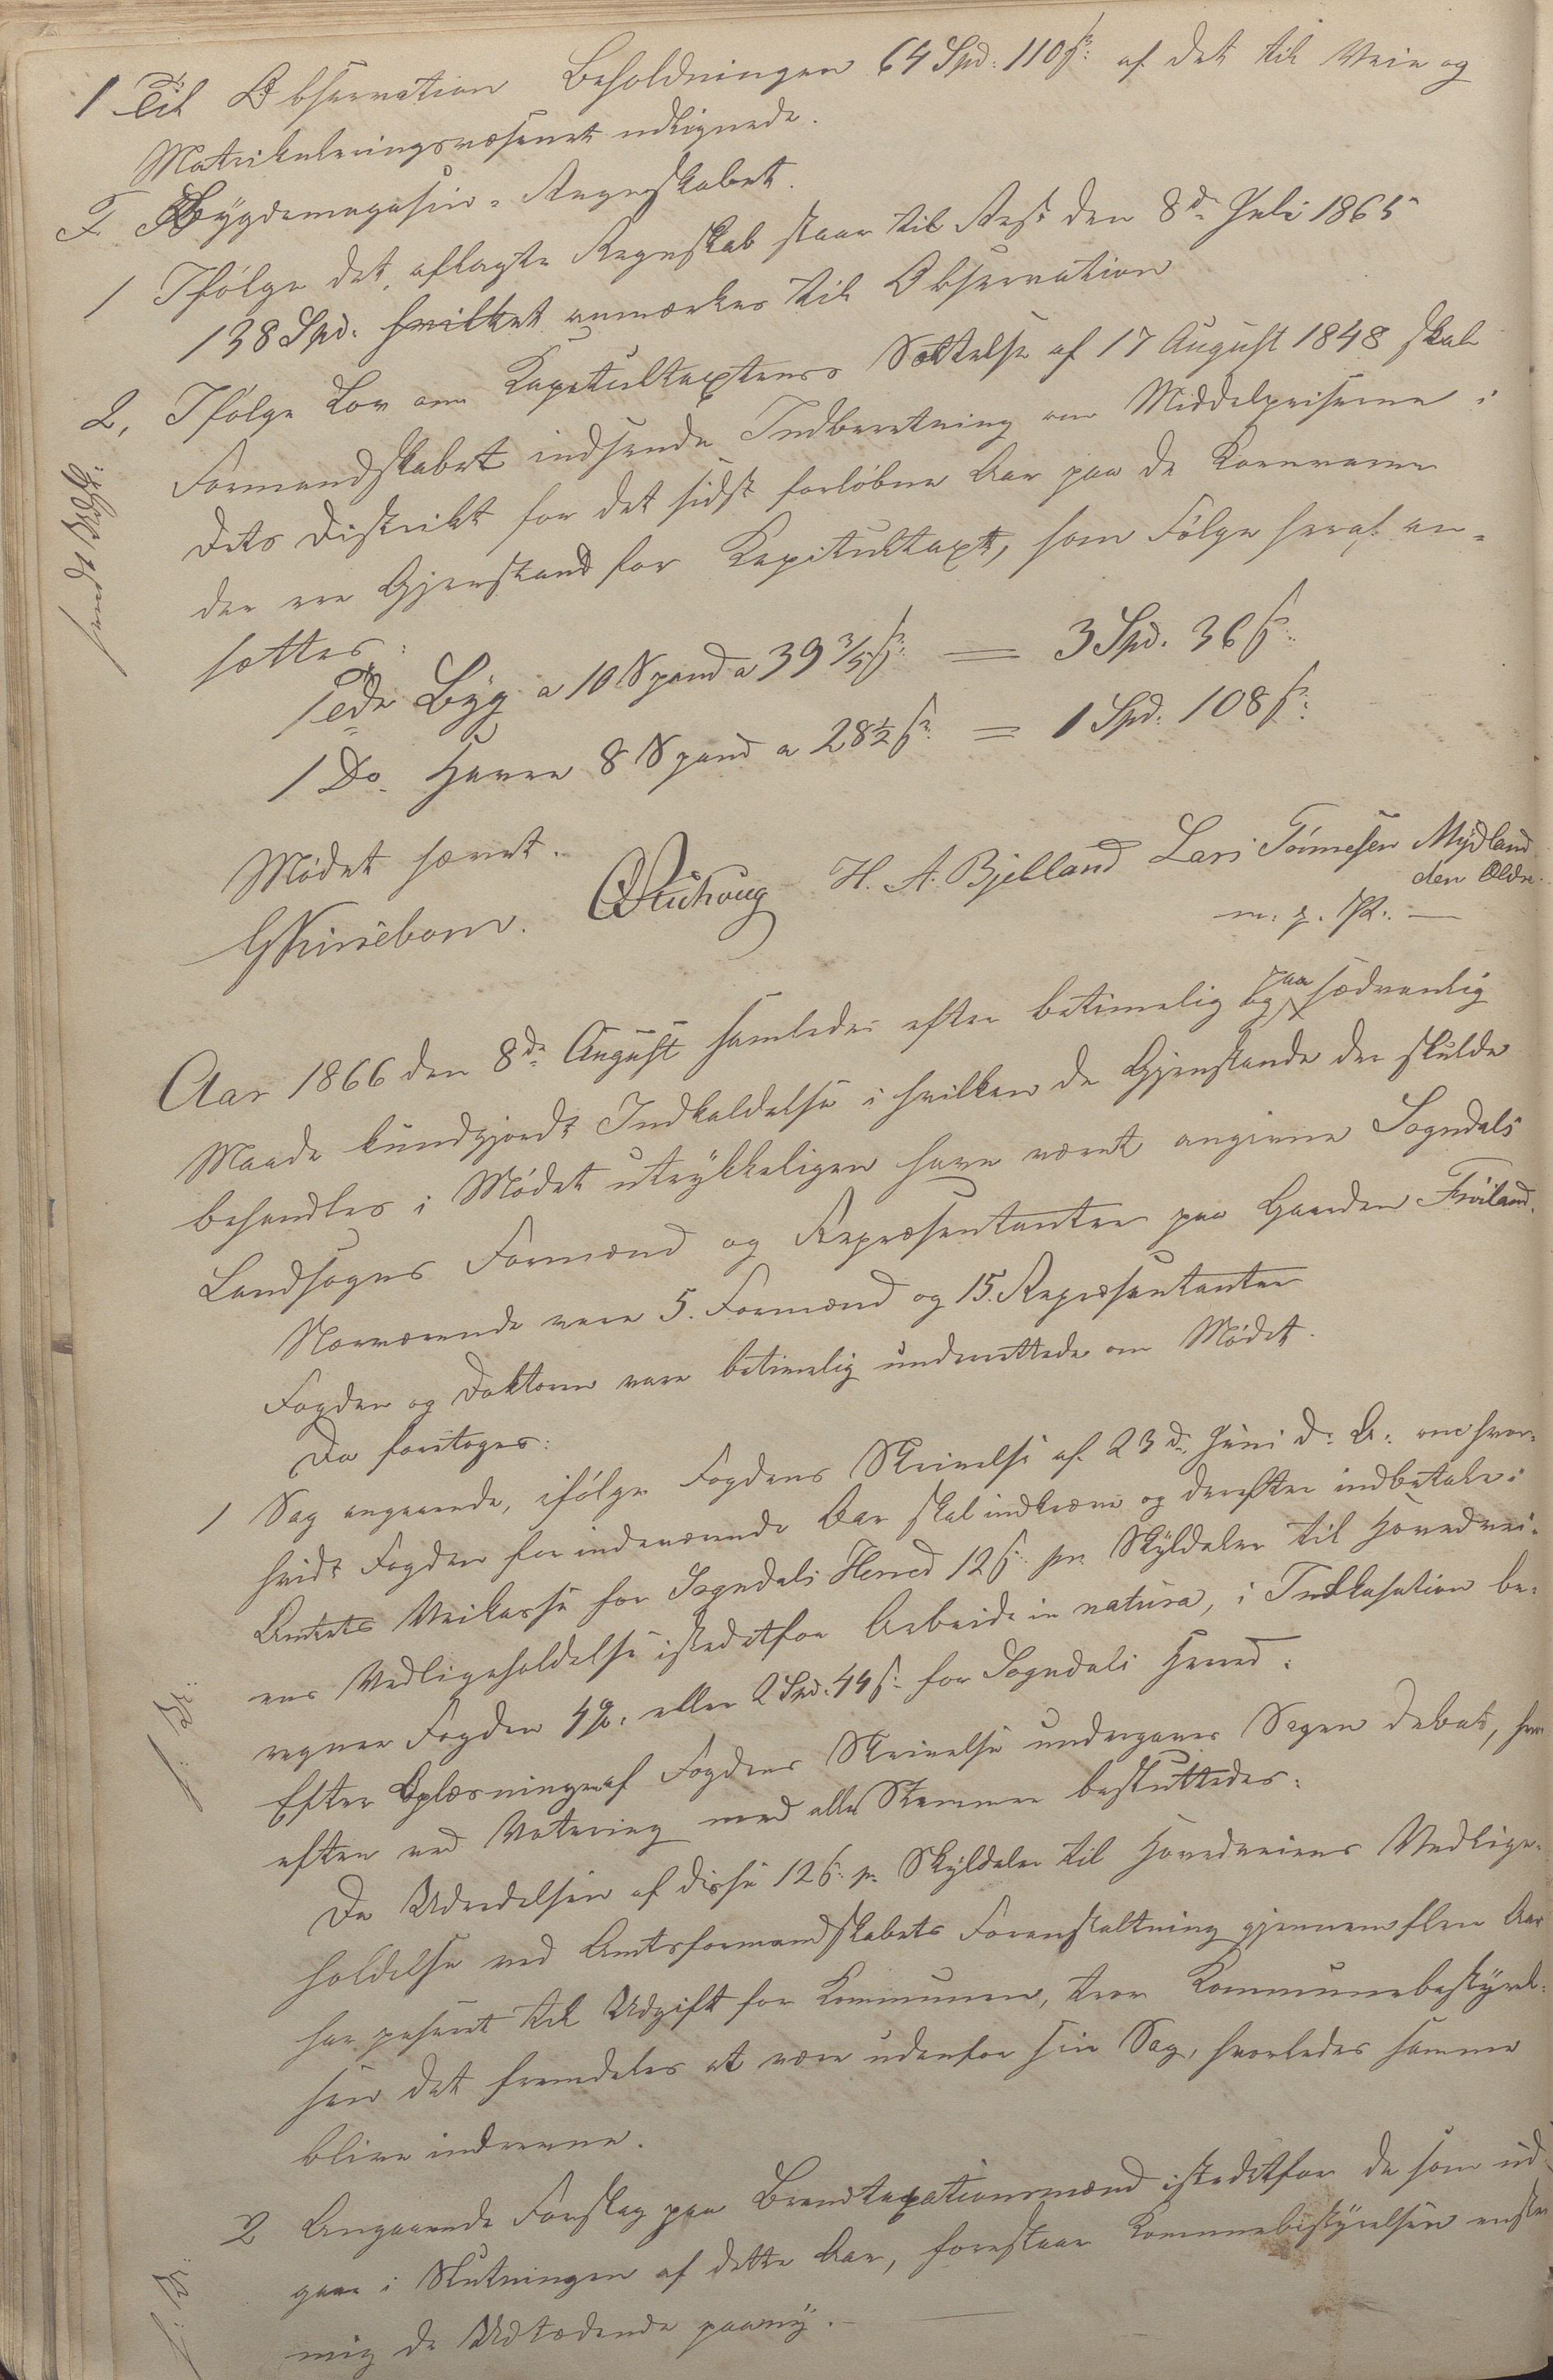 1 Til Observation Beholdningen 64 Spd. 110 ß: af det til Vein og
Matrikuleringsvæsenet udlignede.
F. Bygdemagasin-Regnskabet.
1 Ifølge det aflagte Regnskab staar til Rest den 8de Juli 1865
138 Spd. hvilket anmærkes til Observation
2, Ifølge Lov om Kapitultaxtens Sættelse af 17 August 1848 skal
Formandskabet indsende Indberetning om Middelpriserne i
dets Distrikt for det sidst forløbne Aar paa de Kornvarer
der ere Gjenstand for Kapitultaxt, som Følge heraf an-
sættes:
1 Tde Byg a 10 Spand a 39 3/5 ß: = 3 Spd. 36 ß:
1 Do. Havre 8 Spand a 28 1/2 ß: = 1 Spd: 108 ß:
Mødet hævet.
H. A. Bjelland Lars Tønnesen Mydland
den Eldre.
m. p. P. —
Aar 1866 den 8de August samledes efter betimelig og paa sædvanlig
Maade kundgjordt Indkaldelse i hvilken de Gjenstande der skulde
behandles i Mødet utrykkeligen have været angivne Sogndals
Landsogns Formænd og Repræsentanter paa Gaarden Frøiland.
Nærværende vare 5. Formænd og 15. Repræsentanter
Fogden og Doktoren vare betimelig underrettede om Mødet.
Da foretoges:
1 Sag angaaende, ifølge Fogdens Skrivelse af 23de Juni d. A. om hvor-
vidt Fogden for indeværende Aar skal indkræve og derefter indbetale i
Amtets Veikasse for Sogndals Herred 12 ß. pr. Skyldaler til Hovedvei-
ens Vedligeholdelse istedetfor Arbeide in natura, i Inkasation be-
regner Fogden 4%. eller 2 Spd. 44 ß. for Sogndals Herred.
Efter Oplæsningen af Fogdens Skrivelse undergaves Sagen Debat, hvor
efter ved Votering med alle Stemmer besluttedes:
Da Udredelsen af disse 12 ß. pr. Skyldaler til Hovedveiens Vedlige-
holdelse ved Amtsformandskabets Foranstaltning gjennem flere Aar
har paseret til Udgift for Kommunen, troer Kommunebestyrel-
sen det fremdeles at være udenfor sin Sag, hvorledes samme
blive inddrevne.
2 Angaaende Forslag paa Brandtaxationsmænd istedetfor de som ud-
gaae i Slutningen af dette Aar, foreslaaer Kommunebestyrelsen enstem
mig de Udtrædende paany.